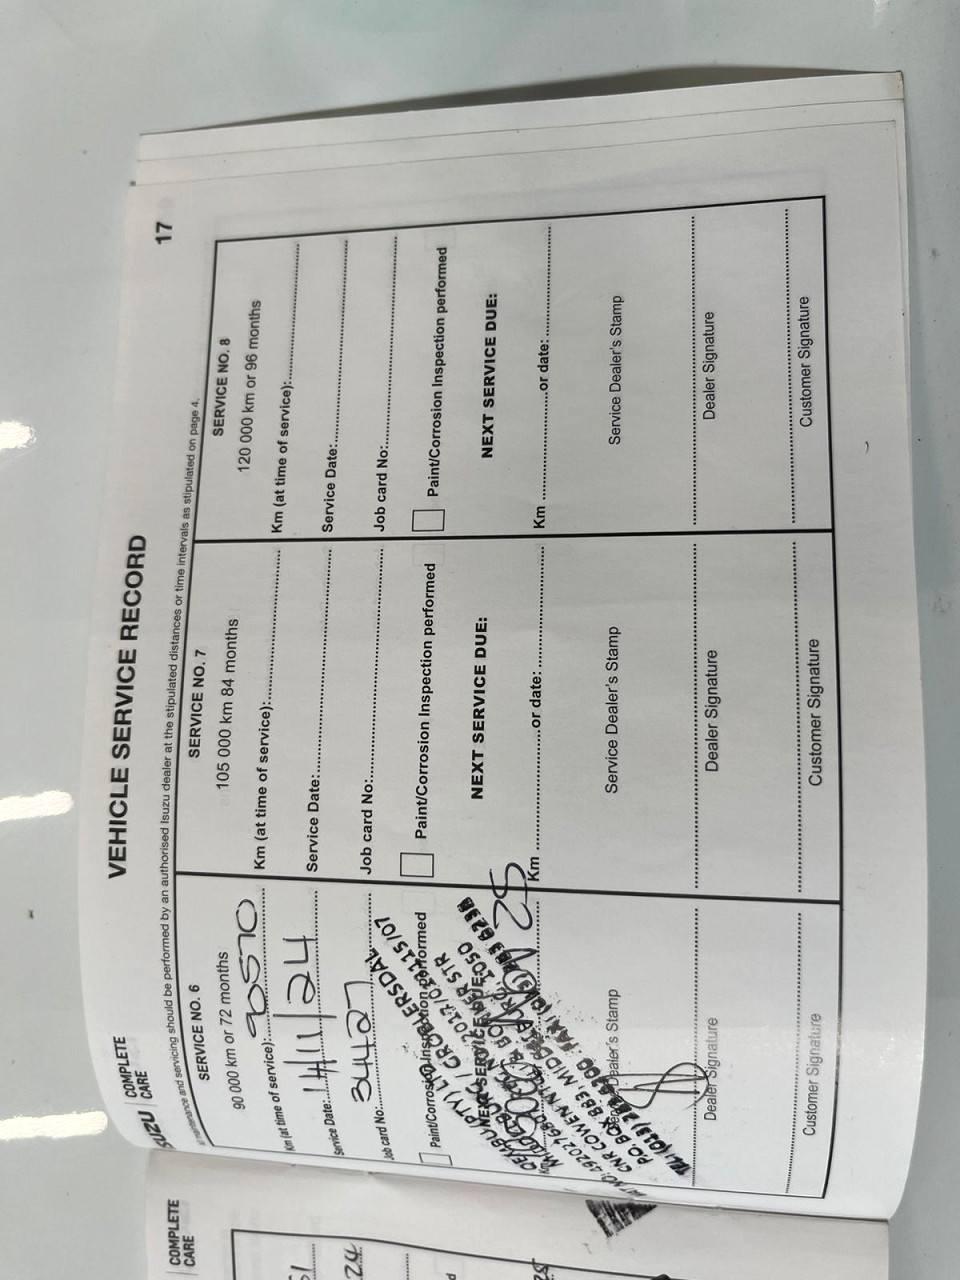 COMPLETE
CARE
51
24
25
ISUZU
COMPLETE
CARE
VEHICLE SERVICE RECORD
17
maintenance and servicing should be performed by an authorised Isuzu dealer at the stipulated distances or time intervals as stipulated on page 4.
SERVICE NO. 6
90 000 km or 72 months
Km (at time of service): 90570
Service Date: 14/11/24
Job card No: 3427
Paint/Corrosion Inspection performed
NEXT SERVICE DUE:
Km
Nov 25
(PTY) LTD
MIDDELBURG / GROBLERSDAL
CNR COWEN
PO. BOX 883, MIDDELBURG, 1050
Service Dealer's Stamp
Dealer Signature
Customer Signature
SERVICE NO. 7
105 000 km 84 months
Km (at time of service):
Service Date:
Job card No:
Paint/Corrosion Inspection performed
NEXT SERVICE DUE:
Km or date:
Service Dealer's Stamp
Dealer Signature
Customer Signature
SERVICE NO. 8
120 000 km or 96 months
Km (at time of service):
Service Date:
Job card No:
Paint/Corrosion Inspection performed
NEXT SERVICE DUE:
Km or date:
Service Dealer's Stamp
Dealer Signature
Customer Signature